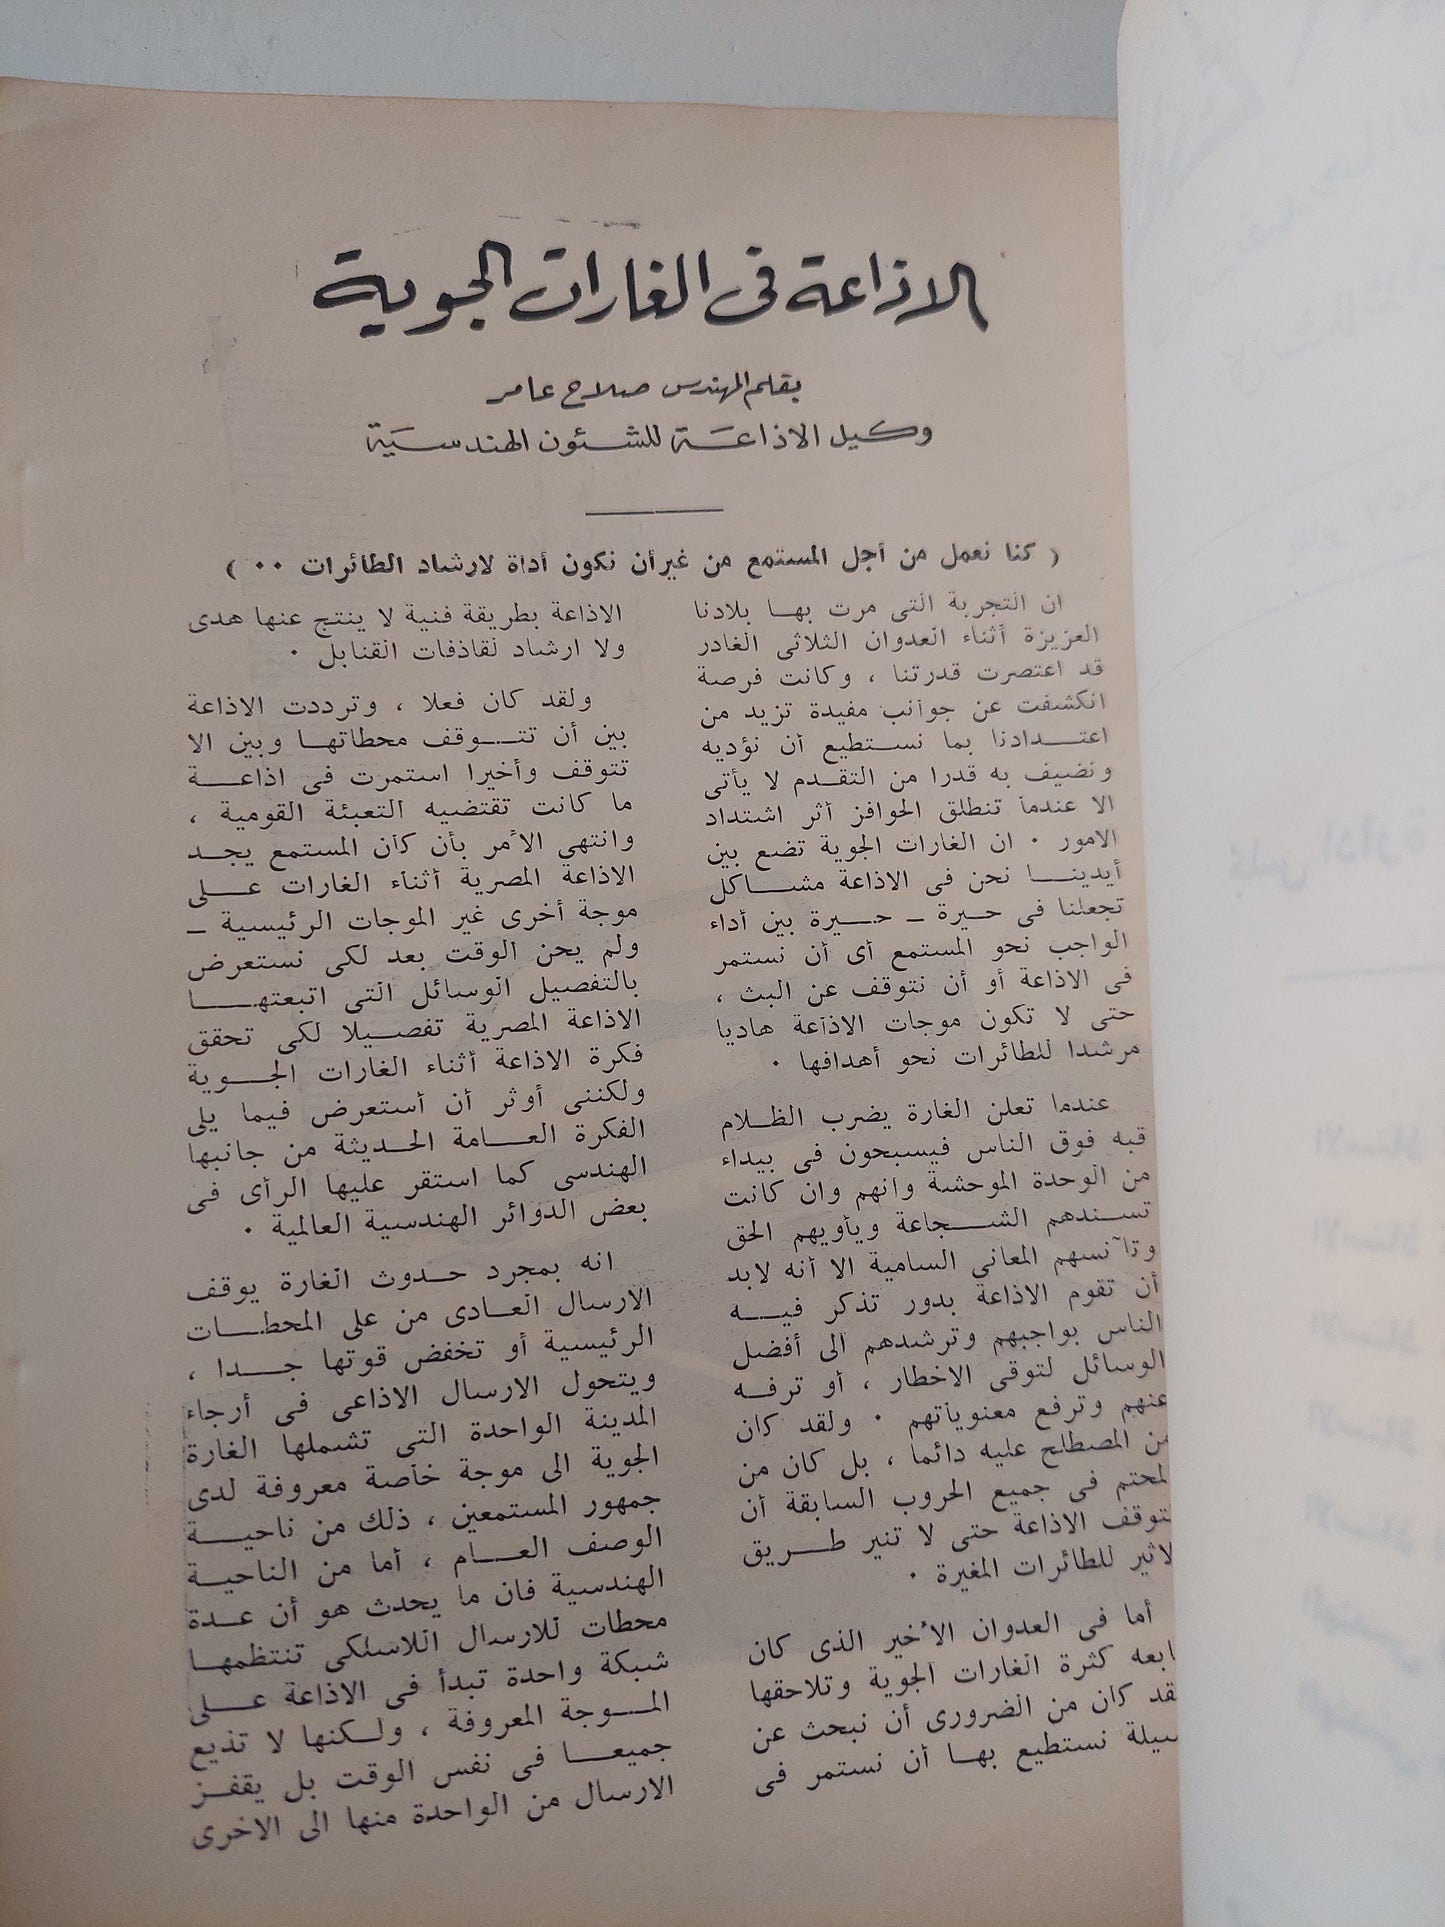 الاذاعة فى الغارات الجوية
بقلم المهندس صلاح عامر
وكيل الاذاعة للشئون الهندسية
( كنا نعمل من أجل المستمع من غير أن نكون أداة لارشاد الطائرات ٠٠ )
ان التجربة التى مرت بها بلادنا
العزيزة أثناء العدوان الثلاثى الغادر
قد اعتصرت قدرتنا ، وكانت فرصة
انكشفت عن جوانب مفيدة تزيد من
اعتدادنا بما نستطيع أن نؤديه
ونضيف به قدرا من التقدم لا يأتى
الا عندما تنطلق الحوافز أثر اشتداد
الامور ٠ ان الغارات الجوية تضع بين
أيدينا نحن فى الاذاعة مشاكل
تجعلنا فى حيرة ــ حيرة بين أداء
الواجب نحو المستمع أى أن نستمر
فى الاذاعة أو أن نتوقف عن البث ،
حتى لا تكون موجات الاذاعة هاديا
مرشدا للطائرات نحو أهدافها ٠
عندما تعلن الغارة يضرب الظلام
قبه فوق الناس فيسبحون فى بيداء
من الوحدة الموحشة وانهم وان كانت
تسندهم الشجاعة ويأويهم الحق
وتآنسهم المعانى السامية الا أنه لابد
أن تقوم الاذاعة بدور تذكر فيه
الناس بواجبهم وترشدهم الى أفضل
الوسائل لتوقى الاخطار ، أو ترفه
عنهم وترفع معنوياتهم ٠ ولقد كان
من المصطلح عليه دائما ، بل كان من
لمحتم فى جميع الحروب السابقة أن
تتوقف الاذاعة حتى لا تنير طريق
لاثير للطائرات المغيرة ٠
أما فى العدوان الأخير الذى كان
ابعه كثرة الغارات الجوية وتلاحقها
قد كان من الضرورى أن نبحث عن
سيلة نستطيع بها أن نستمر فى
الاذاعة بطريقة فنية لا ينتج عنها هدى
ولا ارشاد لقاذفات القنابل ٠
ولقد كان فعلا ، وترددت الاذاعة
بين أن تتوقف محطاتها وبين الا
تتوقف وأخيرا استمرت فى اذاعة
ما كانت تقتضيه التعبئة القومية ،
وانتهى الأمر بأن كان المستمع يجد
الاذاعة المصرية أثناء الغارات على
موجة أخرى غير الموجات الرئيسية ــ
ولم يحن الوقت بعد لكى نستعرض
بالتفصيل الوسائل التى اتبعتها
الاذاعة المصرية تفصيلا لكى تحقق
فكرة الاذاعة أثناء الغارات الجوية
ولكننى أوثر أن أستعرض فيما يلى
الفكرة العامة الحديثة من جانبها
الهندسى كما استقر عليها الرأى فى
بعض الدوائر الهندسية العالمية ٠
انه بمجرد حدوث الغارة يوقف
الارسال العادى من على المحطات
الرئيسية أو تخفض قوتها جدا ،
ويتحول الارسال الاذاعى فى أرجاء
المدينة الواحدة التى تشملها الغارة
الجوية الى موجة خاصة معروفة لدى
جمهور المستمعين ، ذلك من ناحية
الوصف العام ، أما من الناحية
الهندسية فان ما يحدث هو أن عدة
محطات للارسال اللاسلكى تنتظمها
شبكة واحدة تبدأ فى الاذاعة على
الموجة المعروفة ، ولكنها لا تذيع
جميعا فى نفس الوقت بل يقفز
الارسال من الواحدة منها الى الاخرى